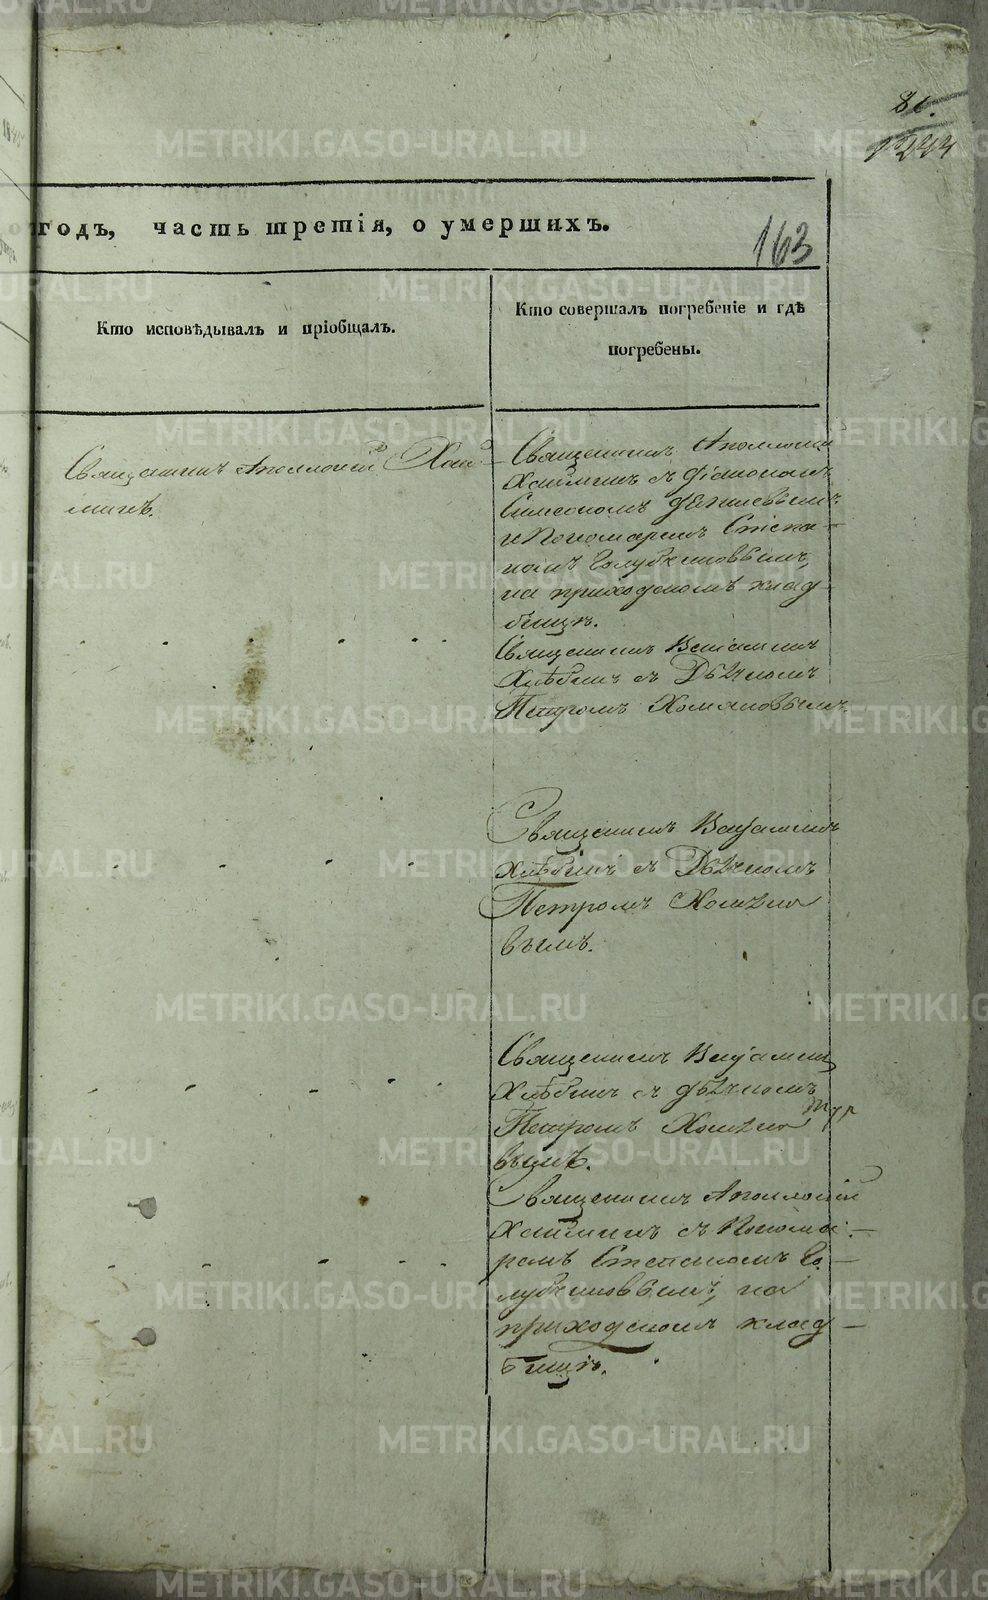 81.
1244
годъ, часть третія, о умершихъ.
163
Кто исповѣдывалъ и пріобщалъ.
Кто совершалъ погребеніе и гдѣ
погребены.
Священникъ Аполлоній Хай
минъ.
Священникъ Аполлоній
Хайминъ съ діакономъ
Симеономъ
и Пономаремъ Степа-
номъ Голубчиковымъ,
на приходскомъ клад-
бищѣ.
Священникъ Веніаминъ
Хлѣбинъ съ Дьячкомъ
Петромъ Хомяковымъ
Священникъ Веніаминъ
Хлѣбинъ съ Дьячкомъ
Петромъ Хомяко
вымъ.
Священникъ Веніаминъ
Хлѣбинъ съ дьячкомъ
Петромъ Хомяко
вымъ.
Священникъ Аполлоній
Хайминъ съ Понома-
ремъ Степаномъ Го-
лубчиковымъ, на
приходскомъ клад-
бищѣ.
METRIKI.GASO-URAL.RU